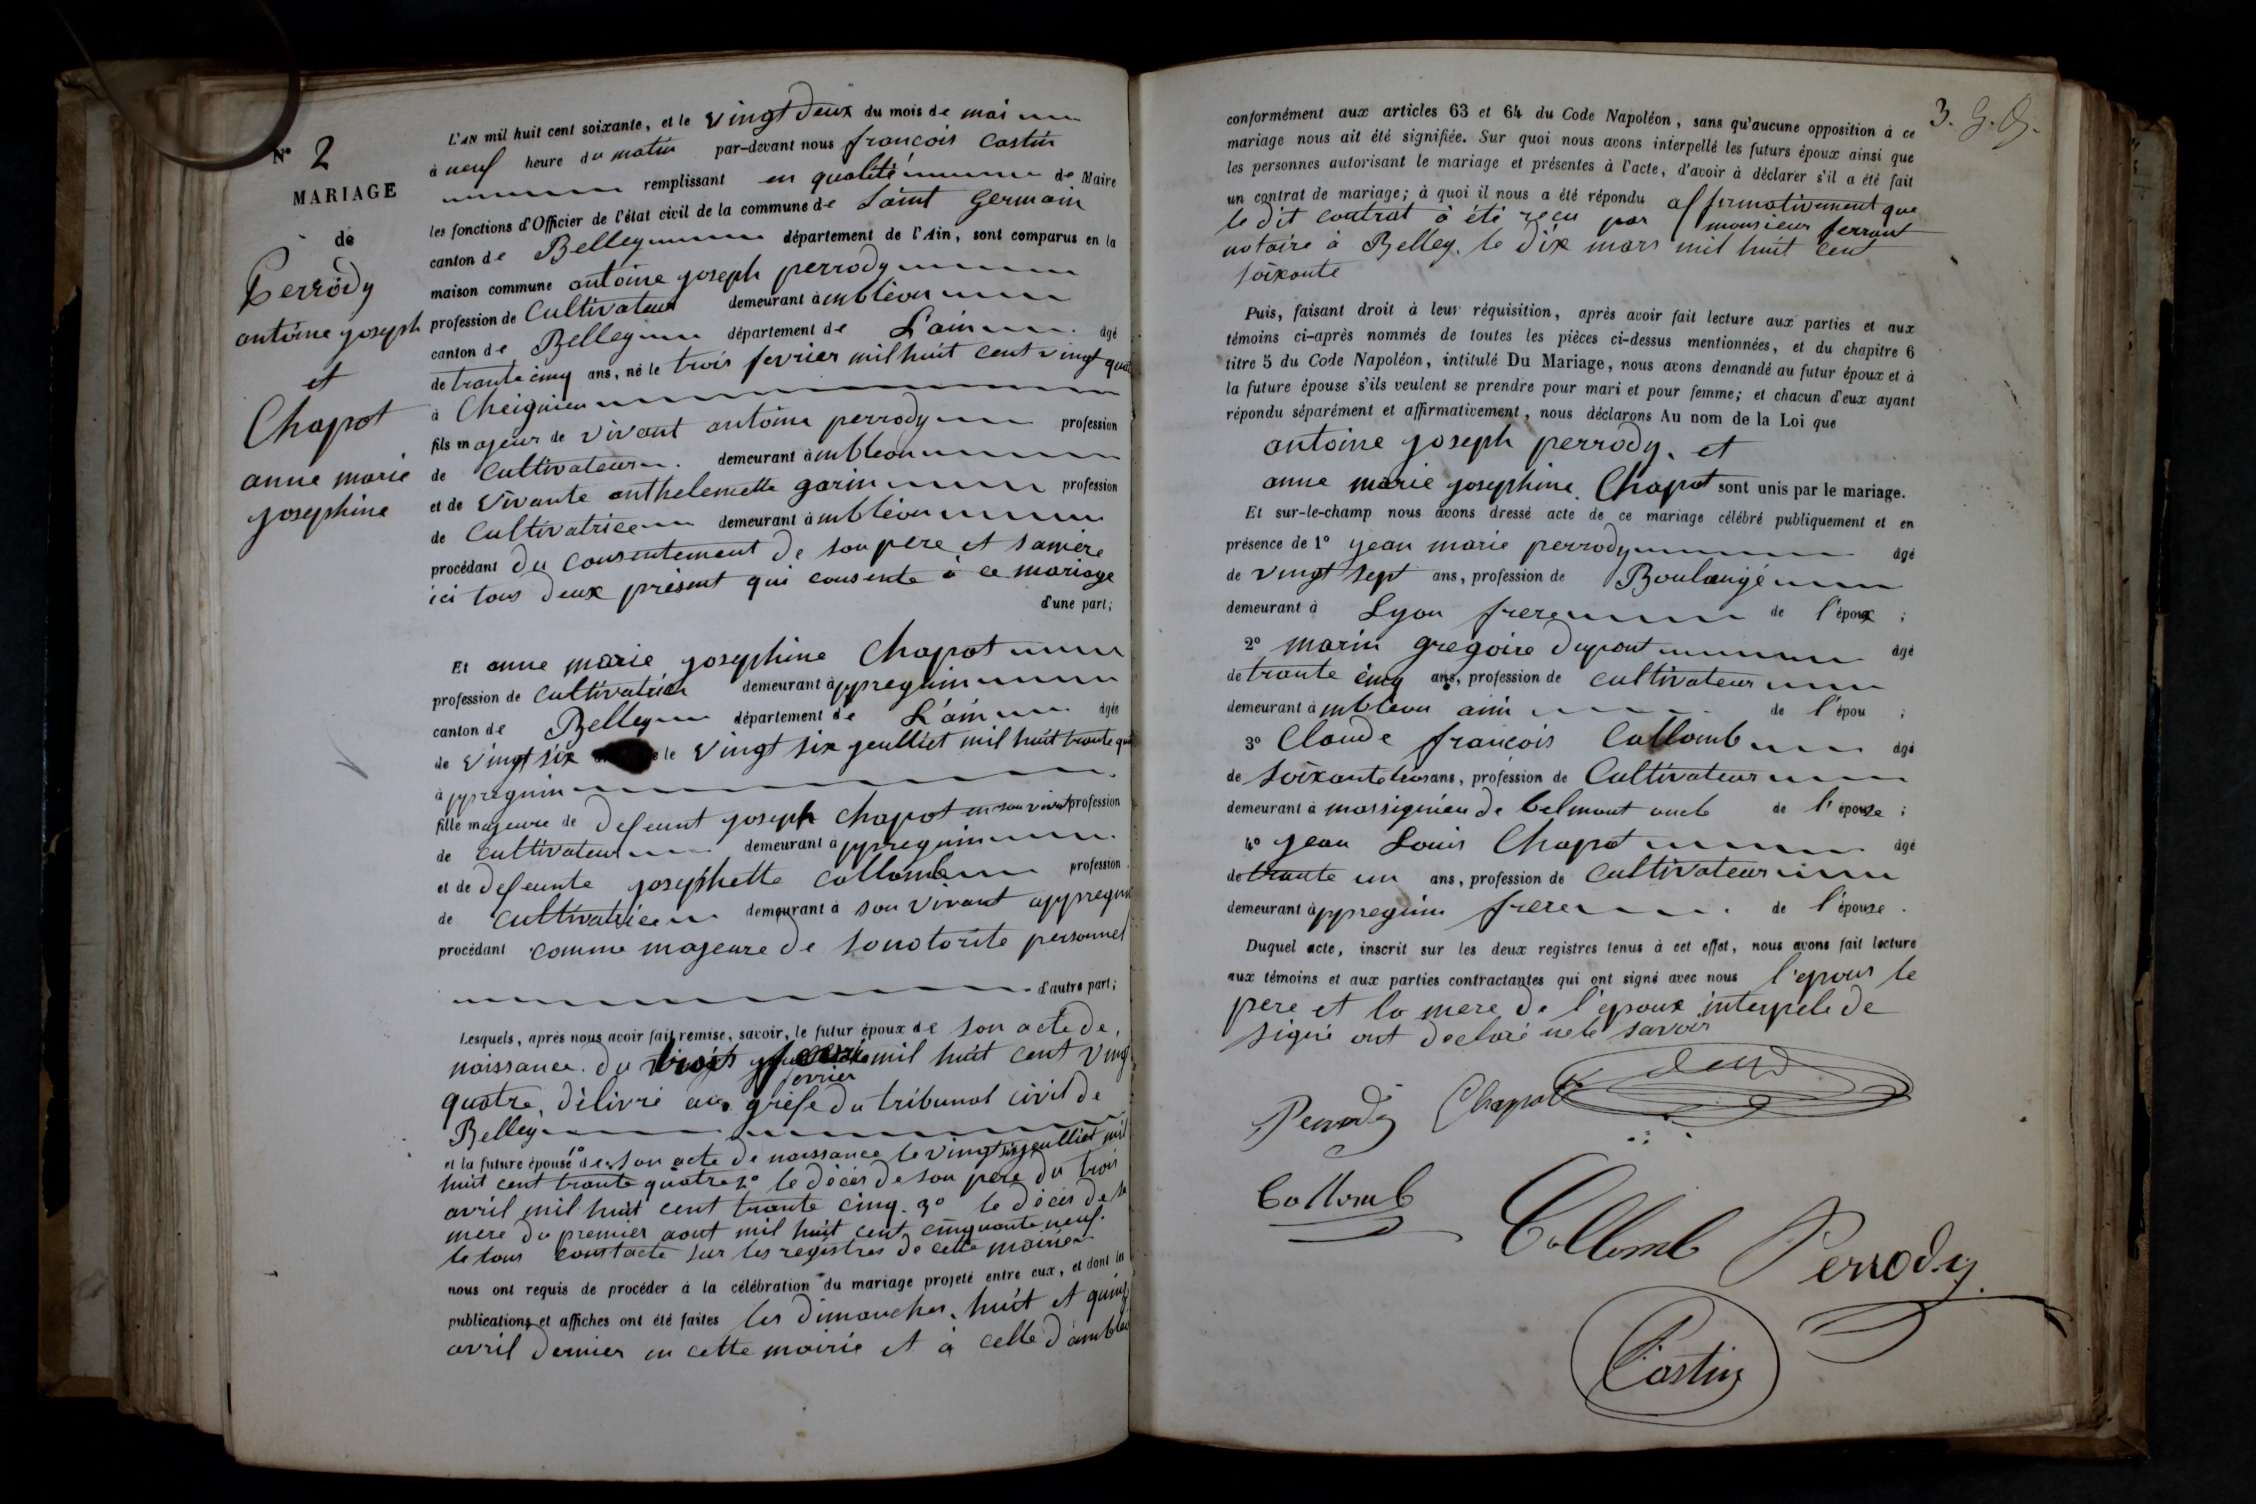 N° 2
MARIAGE
de
Perrody
antoine joseph
et
Chapot
anne marie
josephine
L'AN mil huit cent soixante, et le vingt deux du mois de mai
à neuf heure du matin par-devant nous françois Castin
remplissant en qualité de Maire
les fonctions d'Officier de l'état civil de la commune de Saint Germain
canton de Belley département de l'Ain, sont comparus en la
maison commune antoine joseph perrody
profession de Cultivateur demeurant à mbléon
canton de Belley département de L'ain âgé
de trante cinq ans, né le trois fevrier mil huit cent vingt qua
à Cheignieu
fils majeur de vivant antoine perrody profession
de cultivateur demeurant à mbleon
et de vivante anthelemette garin profession
de Cultivatrice demeurant à mbléon
procédant du consentement de son pere et sa mère
ici tous deux présent qui consente à ce mariage
d'une part;
Et anne marie josephine Chapot
profession de cultivatrice demeurant à ppregnin
canton de Belley département de L'ain âgée
de vingt six le vingt six jeulliet mil huit trante qua
à ppregnin
fille majeure de defeunt joseph Chapot en son vivant profession
de cultivateur demeurant à ppregnin
et de defeunte josephette collomb profession
de cultivatrice demeurant à son vivant appregnin
procédant comme majeure de sonotorite personnel
d'autre part;
Lesquels, après nous avoir fait remise, savoir, le futur époux de son acte de
naissance du trois mil huit cent vingt
fevrier
quatre, délivré au grefe du tribunal civil de
Belley
et la future épouse 1° de son acte de naissance le vingt six jeulliet mil
huit cent trante quatre 2° le décés de son pere du trois
avril mil huit cent trante cinq. 3° le décés de sa
mere du premier aout mil huit cent cinquante neuf.
le tous constacté sur les registres de cette mairie
nous ont requis de procéder à la célébration du mariage projeté entre eux, et dont les
publications et affiches ont été faites les dimanches, huit et quinz
avril dernier en cette mairie et à celle d'ambleo
3. G. G.
conformément aux articles 63 et 64 du Code Napoléon, sans qu'aucune opposition à ce
mariage nous ait été signifiée. Sur quoi nous avons interpellé les futurs époux ainsi que
les personnes autorisant le mariage et présentes à l'acte, d'avoir à déclarer s'il a été fait
un contrat de mariage; à quoi il nous a été répondu affirmativement que
le dit contrat à été reçu par monsieur ferrant
notaire à Belley. le dix mars mil huit cent
soixante
Puis, faisant droit à leur réquisition, après avoir fait lecture aux parties et aux
témoins ci-après nommés de toutes les pièces ci-dessus mentionnées, et du chapitre 6
titre 5 du Code Napoléon, intitulé Du Mariage, nous avons demandé au futur époux et à
la future épouse s'ils veulent se prendre pour mari et pour femme; et chacun d'eux ayant
répondu séparément et affirmativement, nous déclarons Au nom de la Loi que
antoine joseph perrody. et
anne marie josephine. Chapot sont unis par le mariage.
Et sur-le-champ nous avons dressé acte de ce mariage célébré publiquement et en
présence de 1° jean marie perrody âgé
de vingt sept ans, profession de Boulangé
demeurant à Lyon frere de l'époux ;
2° marin gregoire dupont âgé
de trante cinq ans, profession de cultivateur
demeurant à mbleon ami de l'épou ;
3° Claude françois Collomb âgé
de soixante ans, profession de Cultivateur
demeurant à massignieu de belmont oncle de l'épouze ;
4° jean Louis Chapot âgé
de trante un ans, profession de Cultivateur
demeurant à ppregnin frere de l'épouze .
Duquel acte, inscrit sur les deux registres tenus à cet effet, nous avons fait lecture
aux témoins et aux parties contractantes qui ont signé avec nous l'epous le
pere et la mere de l'epoux interpele de
signé ont declaré ne le savoir
Perrody Chapot
Collomb
Collomb Perrody
Castin